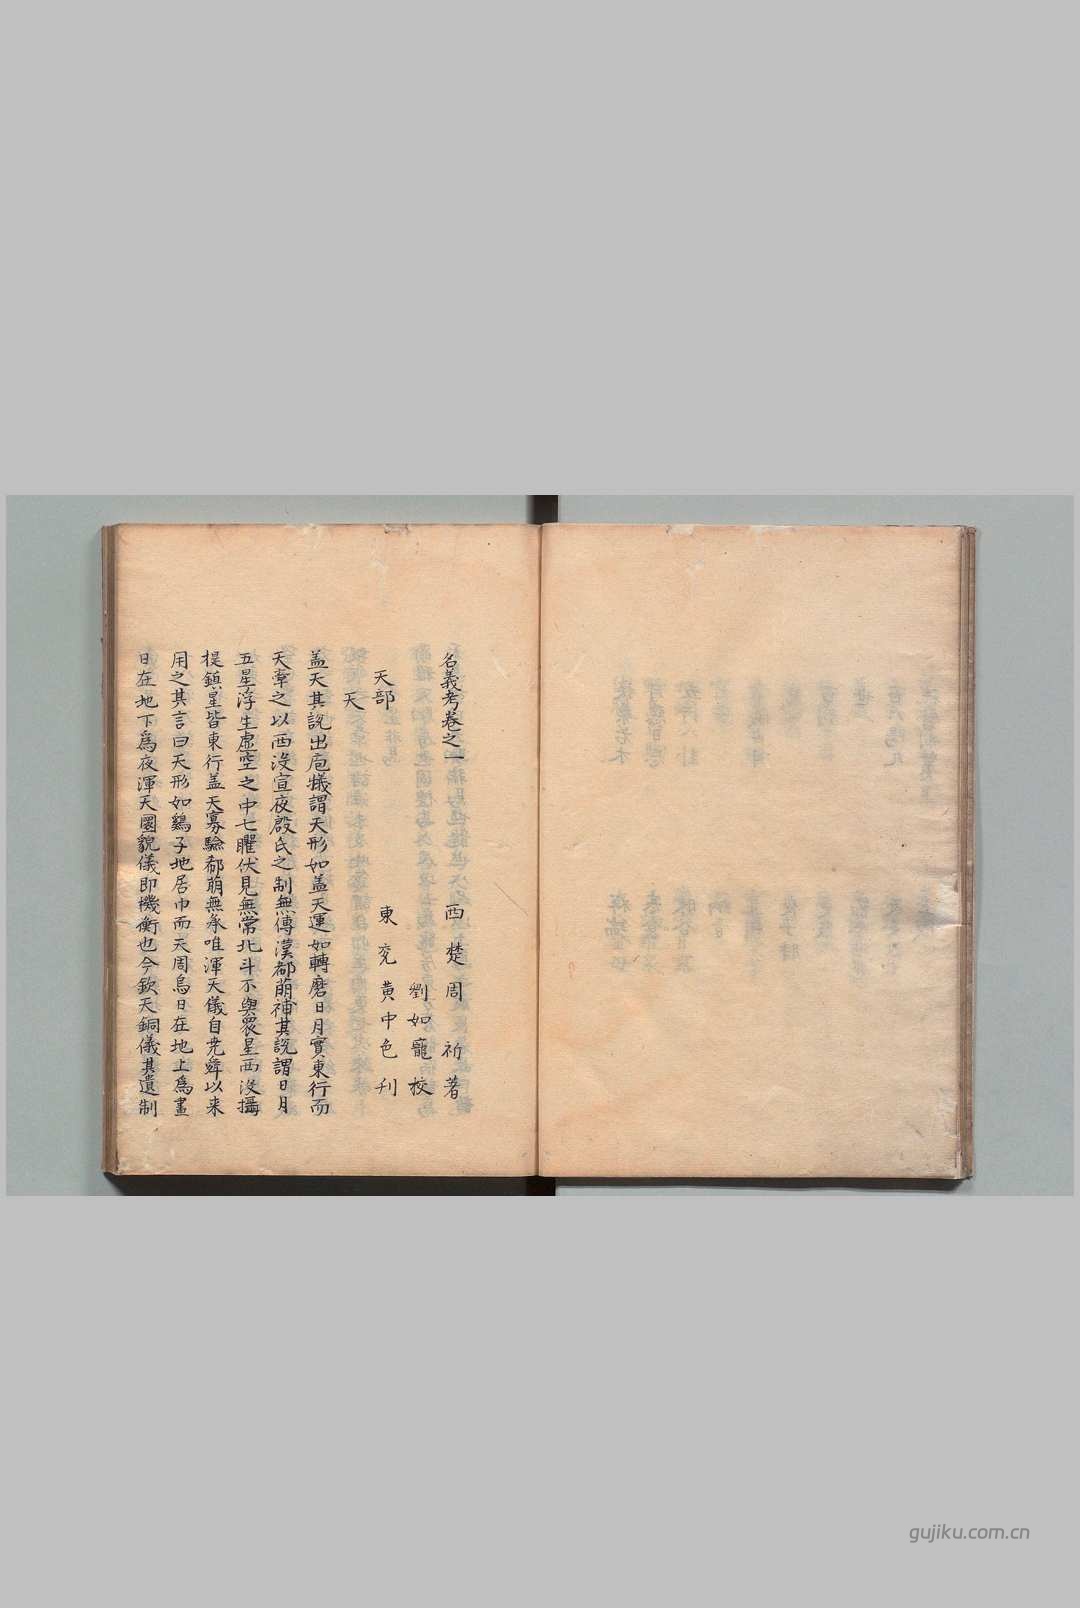 名義考卷之一
西楚周祈著
劉如寵校
天部
東兖黄中色刋
天
盖天其説出庖犠謂天形如盖天運如轉磨日月實東行而
天牽之以西没宣夜殷氏之制無傳漢郗萌補其説謂日月
五星浮生虚空之中七曜伏見無常北斗不與衆星西没攝
提鎮星皆東行盖天寡驗郗萌無承唯渾天儀自尭舜以来
用之其言曰天形如鷄子地居巾而天周焉日在地上為晝
日在地下為夜渾天圜貌儀即機衡也今欽天銅儀其遺制
gujiku.com.cn